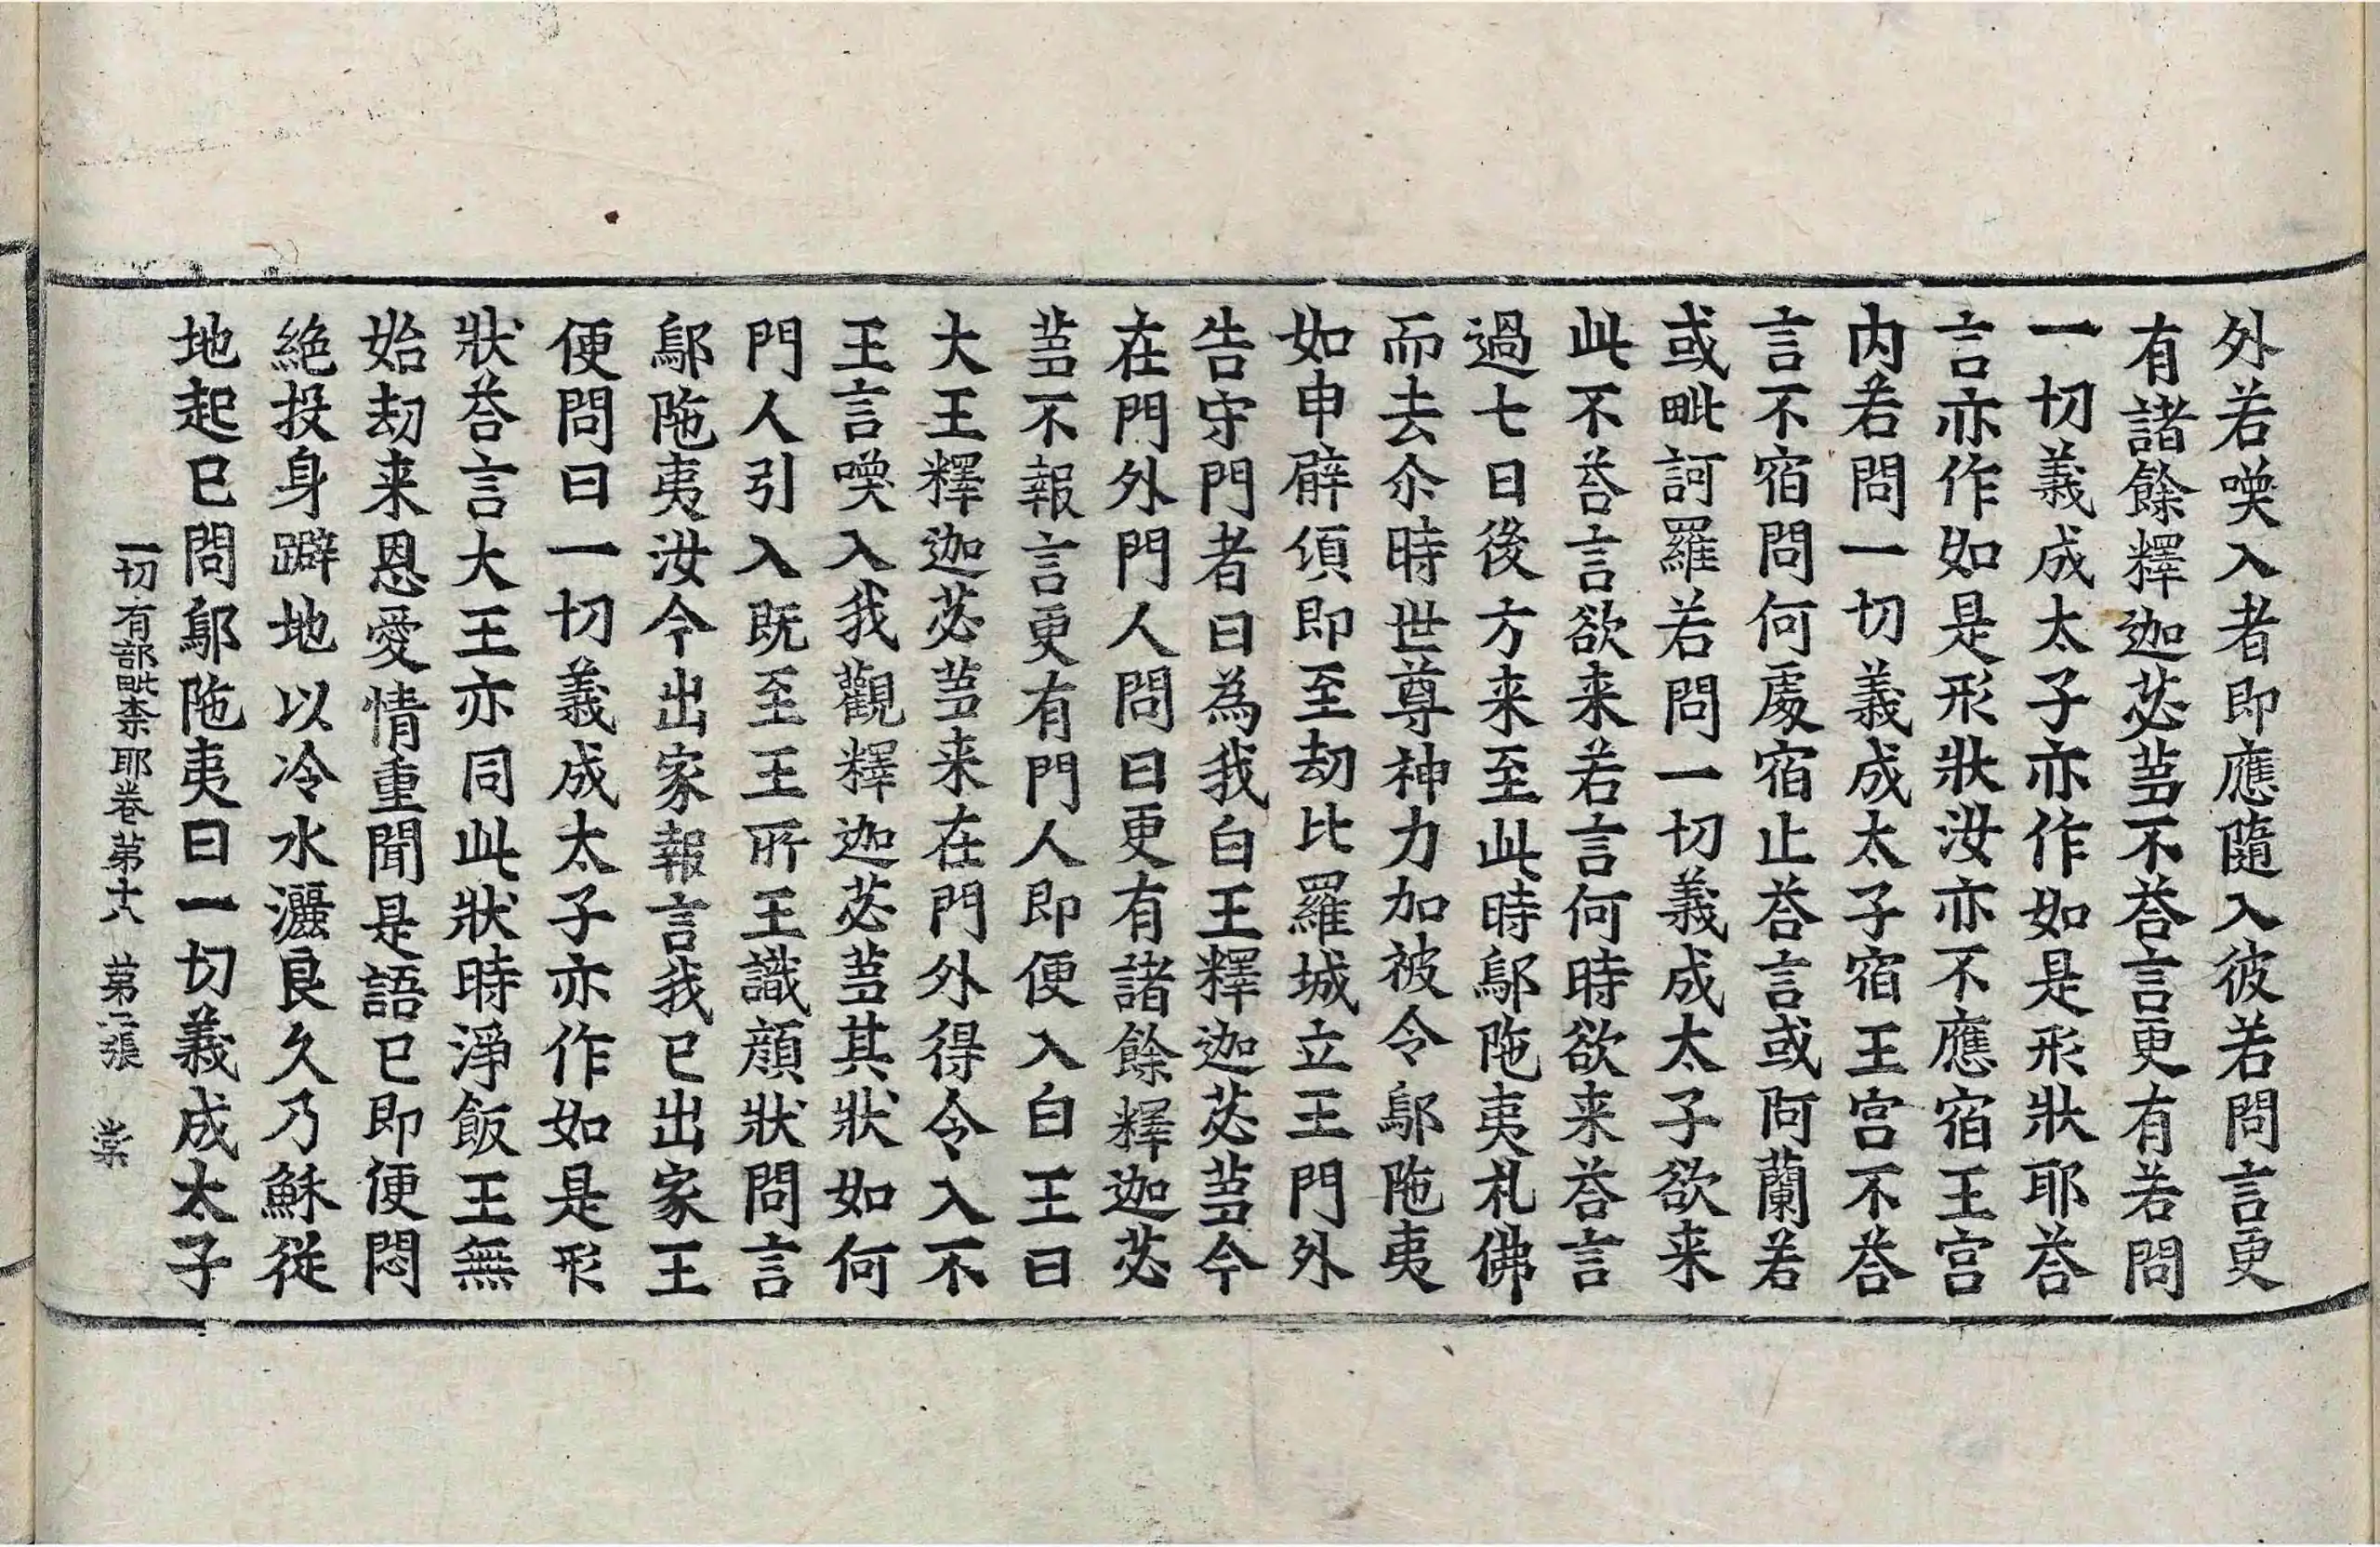 外若喚入者即應隨入彼若問言更
有諸餘釋迦苾蒭不荅言更有若問
一切義成太子亦作如是形狀耶荅
言亦作如是形狀汝亦不應宿王宮
内若問一切義成太子宿王宮不荅
言不宿問何處宿止荅言或阿蘭若
或毗訶羅若問一切義成太子欲来
此不荅言欲来若言何時欲来荅言
過七日後方来至此時鄔陁夷礼佛
而去尒時世尊神力加被令鄔陁夷
如申臂傾即至劫比羅城立王門外
告守門者曰為我白王釋迦苾蒭今
在門外門人問曰更有諸餘釋迦苾
蒭不報言更有門人即便入白王曰
大王釋迦苾蒭来在門外得令入不
王言喚入我觀釋迦苾蒭其狀如何
門人引入既至王所王識顔狀問言
鄔陁夷汝今出家報言我已出家王
便問曰一切義成太子亦作如是形
狀荅言大王亦同此狀時淨飯王無
始劫来恩愛情重聞是語已即便悶
絶投身躃地以冷水灑良久乃穌従
地起已問鄔陁夷曰一切義成太子
一切有部毗柰耶卷苐十八 苐二張 棠